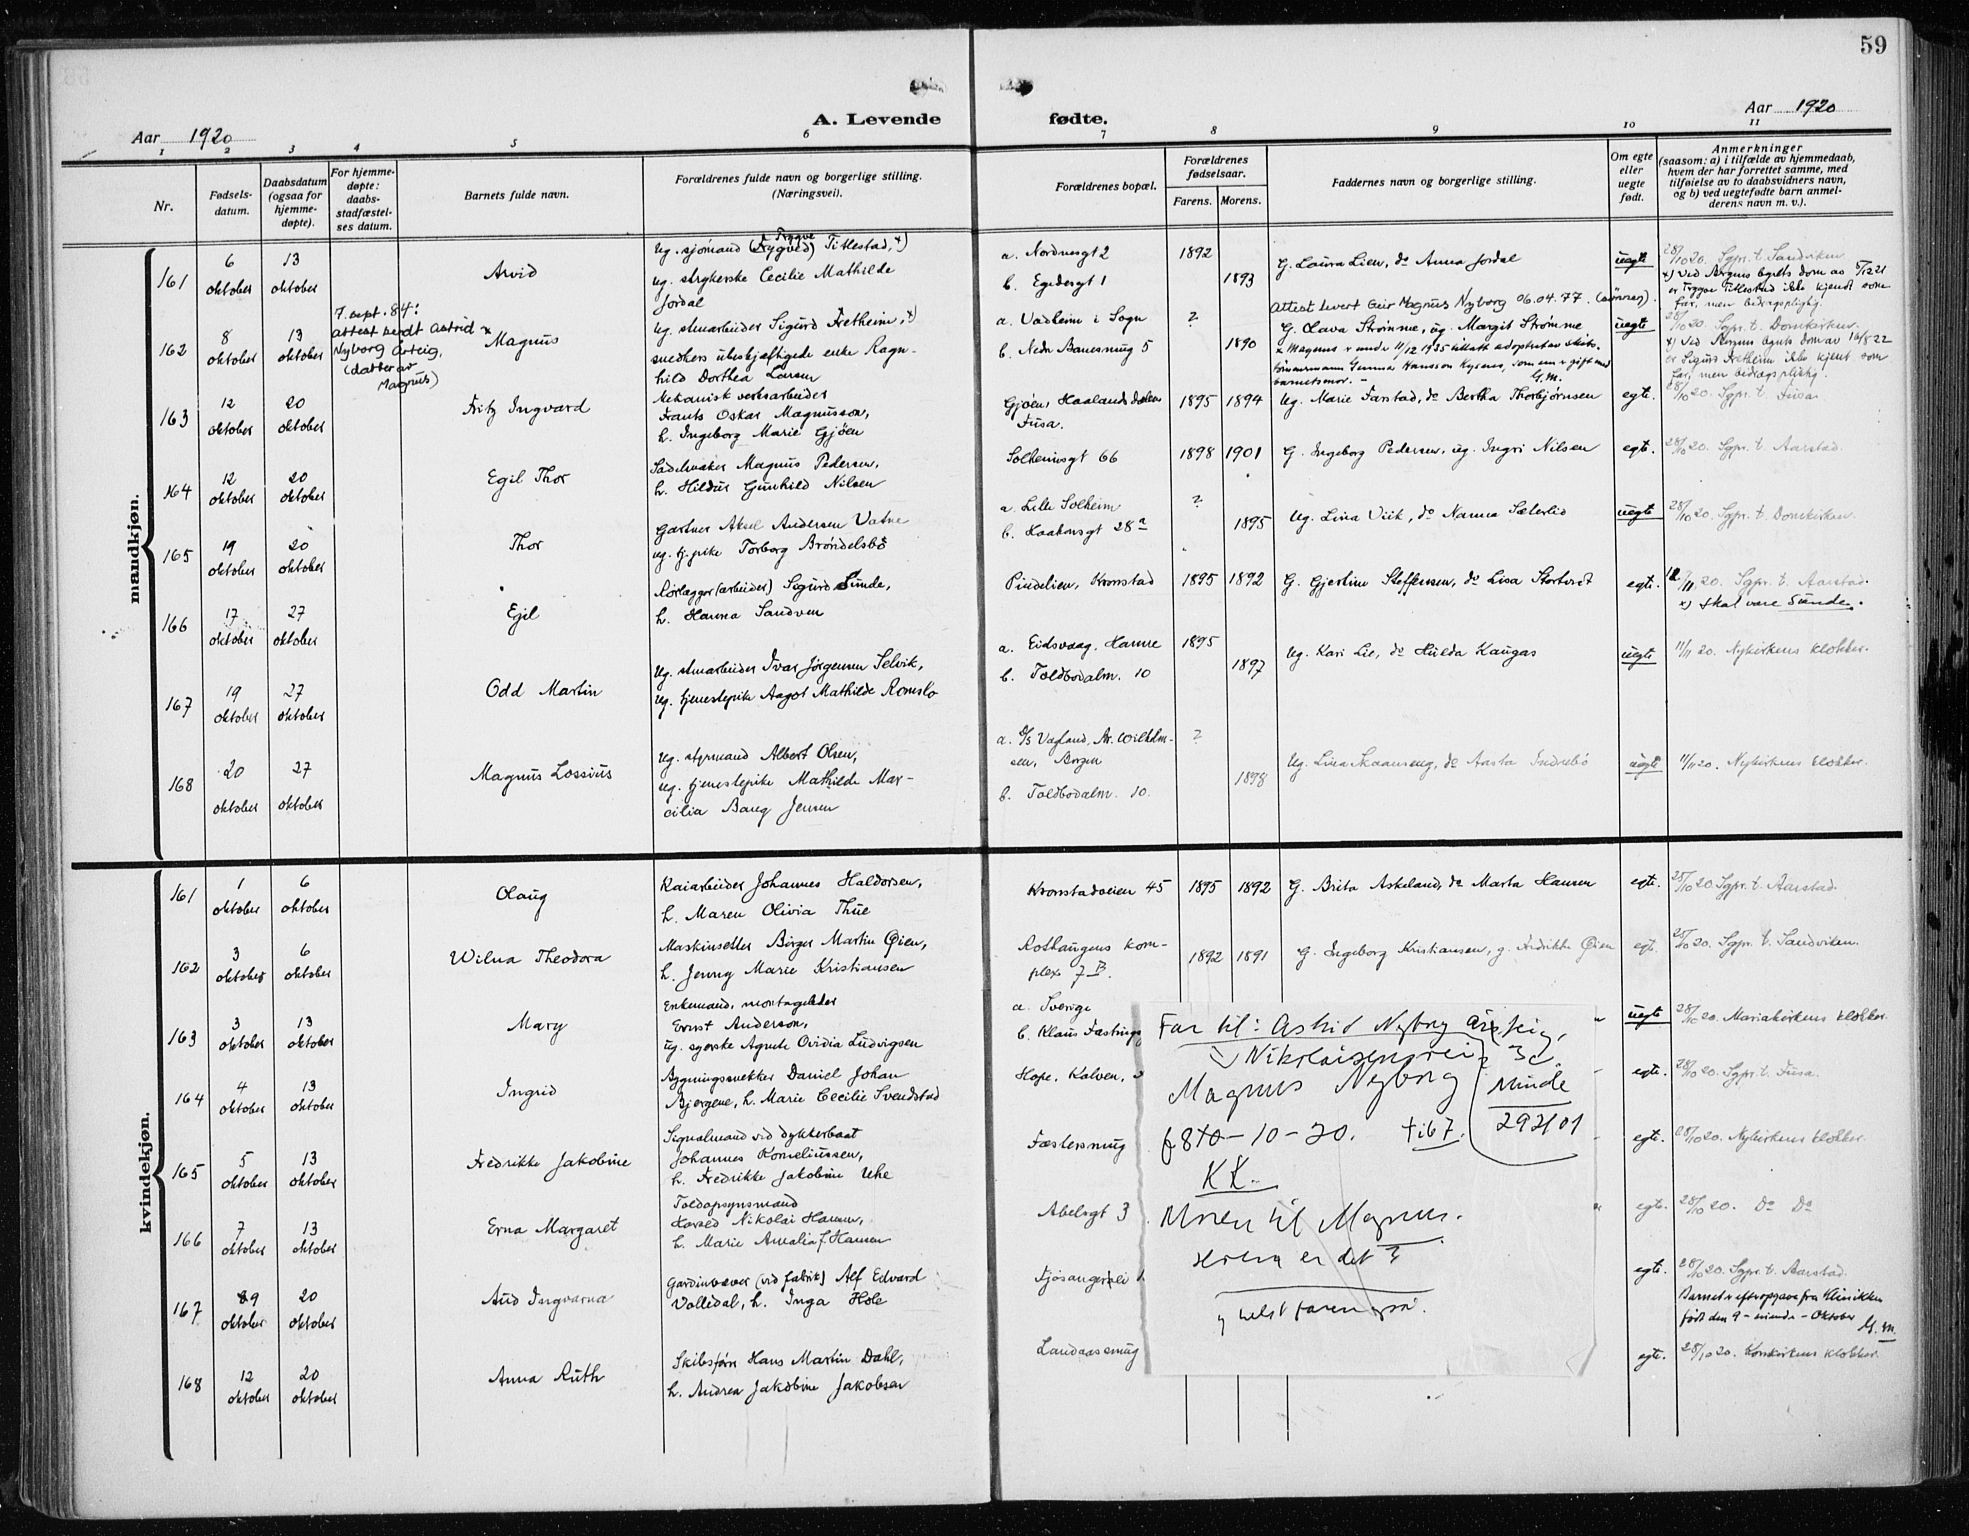 59
A. Levende fødte.
Aar 1920
Aar 1920
1 2 3 4 5 6 7 8 9 10 11
Nr.
Fødsels-
datum.
Daabsdatum
(ogsaa for
hjemme-
døpte).
For hjemme-
døpte:
daabs-
stadfæstel-
ses datum.
Barnets fulde navn.
Forældrenes fulde navn og borgerlige stilling.
(Næringsvei).
Forældrenes bopæl.
Forældrenes
fødselsaar.
Farens. Morens.
Faddernes navn og borgerlige stilling.
Om egte
eller
uegte
født.
Anmerkninger
(saasom: a) i tilfælde av hjemmedaab,
hvem der har forrettet samme, med
tilføielse av to daabsvidners navn,
og b) ved uegtefødte barn anmel-
derens navn m. v.).
mandkjøn.
161
6 oktober
13 oktober
Arvid
Ug. sjømand (Trygve) Titlestad, x)
ug. strykerske Cecilie Mathilde
Jordal
a. Nordnesgt 2
b. Egedesgt 1
1892
1893
G. Laura Lien, do Anna Jordal
uegte
28/10 20. Sgpr. t. Sandviken
x) Ved Bergens byrets dom av
er Trygve Titlestad ikke kjendt som
far, men bidragspliktig.
162
8 oktober
13 oktober
7. sept. 84:
attest sendt Astrid
Nyborg Årteig,
(datter av
Magnus)
x Magnus
Ug. stuearbeider Sigurd Fretheim, x)
snedkers ubeskjæftigede enke Ragn-
hild Dorthea Larsen
a. Vadheim i Sogn
b. Nedr Banesmug 5
?
1890
Attest levert Geir Magnus Nyborg 06.04.77.
G. Olava Strømme, ug. Margit Strømme
x Magnus er under 11/12 1935 tillatt adoptert av
tømmermann Gunnar Hansson som er gift med
barnets mor. - G.M.
uegte
28/10 20. Sgpr. t. Domkirken.
x) Ved Bergens byrets dom av 16/8 22
er Sigurd Fretheim ikke kjent som
far, men bidragspliktig.
163
12 oktober
20 oktober
Fritz Ingvard
Mekanisk verksarbeider
Frants Oskar Magnusson,
h. Ingeborg Marie Gjøen
Gjøen, Haalandsdalen
Fusa.
1895 1894
Ug. Marie Farstad, do Bertha Thorbjørnsen
egte.
28/10 20. Sgpr. t. Fusa
164
12 oktober
20 oktober
Egil Thor
Sadelmaker Magnus Pedersen,
h. Hildur Gunhild Nilsen
Solheimsgt 66
1898 1901
G. Ingeborg Pedersen, ug. Ingri Nilsen
egte.
28/10 20. Sgpr. t. Aarstad.
165
19 oktober
20 oktober
Thor
Gartner Aksel Andersen Vatne
ug. tj.pike Torborg Brøndelsbø
a. Lille Solheim
b. Haakonsgt 28a
?
1895
Ug. Lina Viik, do Nanna Sæterlid
uegte
28/10 20. Sgpr. t. Domkirken.
166
17 oktober
27 oktober
Egil
Rørlægger(arbeider) Sigurd Sunde,
h. Hanna Sandven
Pindelien, Kronstad
1895 1892
G. Gjertine Steffensen, do Lisa Stortveit
egte.
/11 20. Sgpr. t. Aarstad.
x) Skal være Sunde.
167
19 oktober
27 oktober
Odd Martin
Ug. stuearbeider Ivar Jørgensen Selvik,
ug. tjenestepike Aagot Mathilde Romslo
a. Eidsvaag, Hamre
b. Toldbodalm. 10
1895
1897
Ug. Kari Lie, do Hulda Haugas
uegte
11/11 20. Nykirkens klokker.
168
20 oktober
27 oktober
Magnus Lossius
Ug. styrmand Albert Olsen,
ug. tjenestepike Mathilde Mar-
cilia Bang Jensen
a. S/S Vagland, Ar. Wilhelm-
sen, Bergen
b. Toldbodalm. 10.
?
1898
Ug. Lina Skaanseng, do Aasta Indrebø
uegte
11/11 20. Nykirkens klokker.
kvindekjøn.
161
1 oktober
6 oktober
Olaug
Kaiarbeider Johannes Haldorsen,
h. Maren Olivia Thue
Kronstadveien 45
1895 1892
G. Brita Askeland, do Marta Hansen
egte.
28/10 20. Sgpr. t. Aarstad.
162
3 oktober
6 oktober
Wilna Theodora
Maskinsetter Birger Martin Øien,
h. Jenny Marie Kristiansen
Rothaugens kom-
plex 7 B.
1892 1891
G. Ingeborg Kristiansen, g. Fredrikke Øien
egte.
28/10 20. Sgpr. t. Sandviken.
163
3 oktober
13 oktober
Mary
Enkemand, montageleder
Ernst Anderson,
ug. syerske Agnete Ovidia Ludvigsen
a. Sverige
b. Klaus Fastings
uegte
28/10 20. Mariakirkens klokker.
164
4 oktober
13 oktober
Ingrid
Bygningssnekker Daniel Johan
Bjergene, h. Marie Cecilie Svendstad
Hope, Kalven,
egte.
28/10 20. Sgpr. t. Fusa.
165
5 oktober
13 oktober
Fredrikke Jakobine
Signalmand ved dykkerbaat
Johannes Korneliussen,
h. Fredrikke Jakobine Uhe
Festersmug
egte.
28/10 20. Nykirkens klokker.
166
7 oktober
13 oktober
Erna Margaret
Toldopsynsmand
Harald Nikolai Hansen,
h. Marie Amalia f. Hansen
Abelsgt 3
egte.
28/10 20. Do Do
167
9 oktober
20 oktober
Aud Ingvarna
Gardinvæver (vid fabrik) Alf Edvard
Vollidal, h. Inga Hole
Fjøsangervei 1
egte.
28/10 20. Sgpr. t. Aarstad.
Barnet er efter opgave fra Klinikken
født den 9 - niende - Oktober
G.M.
168
12 oktober
20 oktober
Anna Ruth
Skibsfører Hans Martin Dahl,
h. Andrea Jakobine Jakobsen
Landaassmug
egte.
28/10 20. Korskirkens klokker.
Far til: Astrid Nyborg Årteig,
Nikolaisenvei 3c
Magnus Nyborg
Minde
292101
f 8 10-10-20. † i 67.
KK.
Moren til Magnus.
Hvem er det?
helst faren også.